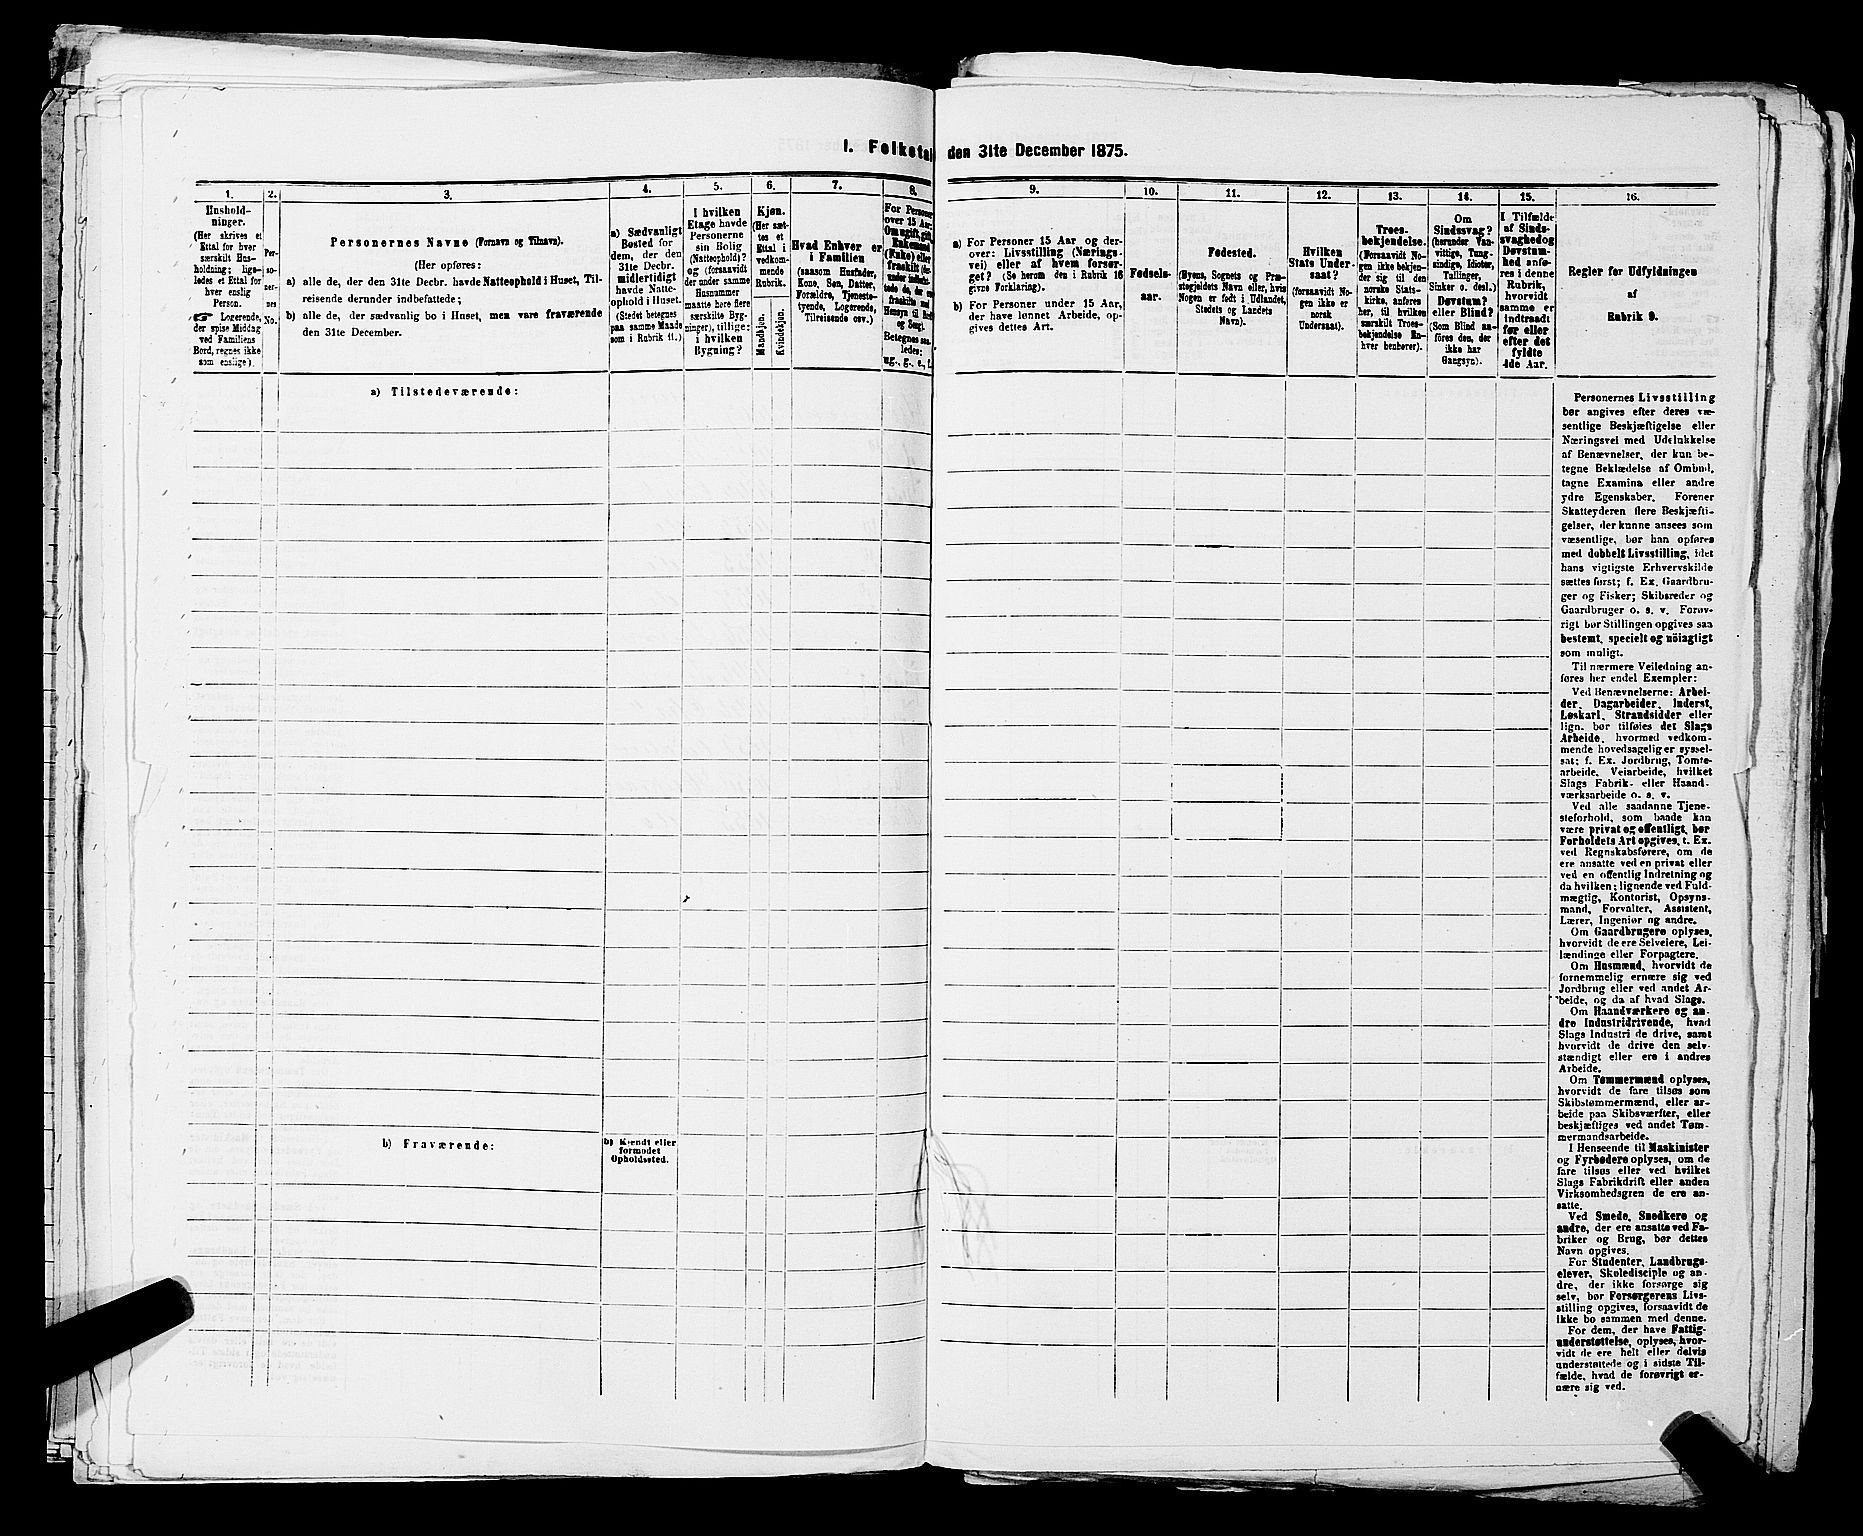 I. Folketal den 31te December 1875.
1.
Hushold-
ninger.
(Her skrives et
Ettal for hver
særskilt Hus-
holdning; lige-
ledes et Ettal for
hver enslig
Person.
☞ Logerende,
der spise Middag
ved Familiens
Bord, regnes ikke
som enslige).
2.
Per-
so-
ner-
nes
No.
3.
Personernes Navne (Fornavn og Tilnavn).
(Her opføres:
a) alle de, der den 31te Decbr. havde Natteophold i Huset, Til-
reisende derunder indbefattede;
b) alle de, der sædvanlig bo i Huset, men vare fraværende
den 31te December.
4.
a) Sædvanligt
Bosted for
dem, der den
31te Decbr.
midlertidigt
havde Natte-
ophold i Huset.
(Stedet betegnes
paa samme Maade
som i Rubrik 11.)
5.
I hvilken
Etage havde
Personerne
sin Bolig
(Natteophold)?
og (forsaavidt
der under samme
Husnummer
maatte høre flere
særskilte Byg-
ninger), tillige:
i hvilken
Bygning?
6.
Kjøn.
(Her sæt-
tes et
Ettal i
vedkom-
mende
Rubrik.
Mandkjøn.
Kvindekjøn.
7.
Hvad Enhver er
i Familien
(saasom Husfader,
Kone, Søn, Datter,
Forældre, Tjeneste-
tyende, Logerende,
Tilreisende osv.)
8.
For Personer
over 15 Aar:
Om ugift, gift,
Enkemand
(Enke) eller
fraskilt
Betegnes saa-
ledes:
ug., g., e., f.
9.
a) For Personer 15 Aar og der-
over: Livsstilling (Nærings-
vei) eller af hvem forsør-
get? (Se herom den i Rubrik 16
givne Forklaring).
b) For Personer under 15 Aar,
der have lønnet Arbeide, op-
gives dettes Art.
10.
Fødsels-
aar.
11.
Fødested.
(Byens, Sognets og Præ-
stegjeldets Navn eller, hvis
Nogen er født i Udlandet,
Stedets og Landets
Navn).
12.
Hvilken
Stats Under-
saat?
(forsaavidt No-
gen ikke er
norsk
Undersaat).
13.
Troes-
bekjendelse.
(Forsaavidt No-
gen ikke bekjen-
der sig til den
norske Stats-
kirke, anføres
her, til hvilken
særskilt Troes-
bekjendelse En-
hver henhører).
14.
Om
Sindssvag?
(herunder Van-
vittige, Tung-
sindige, Idioter,
Tullinger,
Sinker o. desl.)
Døvstum?
eller Blind?
(Som Blind an-
føres den, der
ikke har
Gangsyn).
15.
I Tilfælde
af Sinds-
svaghed og
Døvstum-
hed anfø-
res i denne
Rubrik,
hvorvidt
samme er
indtraadt
før eller
efter det
fyldte
4de Aar.
16.
Regler for Udfyldningen
af
Rubrik 9.
a) Tilstedeværende:
b) Fraværende:
b) Kjendt eller
formodet
Opholdssted.
Personernes Livsstilling
bør angives efter deres væ-
sentlige Beskjæftigelse eller
Næringsvei med Udelukkelse
af Benævnelser, der kun be-
tegne Beklædelse af Ombud,
tagne Examina eller andre
ydre Egenskaber. Forener
Skatteyderen flere Beskjæfti-
gelser, der kunne ansees som
væsentlige, bør han opføres
med dobbelt Livsstilling, idet
hans vigtigste Erhvervskilde
sættes først; f. Ex. Gaardbru-
ger og Fisker; Skibsreder og
Gaardbruger o. s. v. Forøv-
rigt bør Stillingen opgives saa
bestemt, specielt og nöiagtigt
som muligt.
Til nærmere Veiledning an-
føres her endel Exempler:
Ved Benævnelserne: Arbei-
der, Dagarbeider, Inderst,
Løskarl, Strandsidder eller
lign. bør tilføies det Slags
Arbeide, hvormed vedkom-
mende hovedsagelig er syssel-
sat; f. Ex. Jordbrug, Tomte-
arbeide, Veiarbeide, hvilket
Slags Fabrik- eller Haand-
værksarbeide o. s. v.
Ved alle saadanne Tjene-
steforhold, som baade kan
være privat og offentligt, bør
Forholdets Art opgives, t. Ex.
ved Regnskabsførere, om de
ere ansatte ved en privat eller
ved en offentlig Indretning og
da hvilken; lignende ved Fuld-
mægtig, Kontorist, Opsyns-
mand, Forvalter, Assistent,
Lærer, Ingeniør og andre.
Om Gaardbrugere oplyses,
hvorvidt de ere Selveiere, Lei-
lændinge eller Forpagtere.
Om Husmænd, hvorvidt de
fornemmelig ernære sig ved
Jordbrug eller ved andet Ar-
beide, og da af hvad Slags.
Om Haandværkere og an-
dre Industridrivende, hvad
Slags Industri de drive, samt
hvorvidt de drive den selv-
stændigt eller ere i andres
Arbeide.
Om Tømmermænd oplyses,
hvorvidt de fare tilsøs som
Skibstømmermænd, eller ar-
beide paa Skibsværfter, eller
beskjæftiges ved andet Tøm-
mermandsarbeide.
I Henseende til Maskinister
og Fyrbødere oplyses, om de
fare tilsøs eller ved hvilket
Slags Fabrikdrift eller anden
Virksomhedsgren de ere an-
satte.
Ved Smede, Snedkere og
andre, der ere ansatte ved Fa-
briker og Brug, bør dettes
Navn opgives.
For Studenter, Landbrugs-
elever, Skoledisciple og an-
dre, der ikke forsørge sig
selv, bør Forsørgerens Livs-
stilling opgives, forsaavidt de
ikke bo sammen med denne.
For dem, der have Fattig-
understøttelse, oplyses, hvor-
vidt de ere helt eller delvis
understøttede og i sidste Til-
fælde, hvad de forøvrigt er-
nære sig ved.